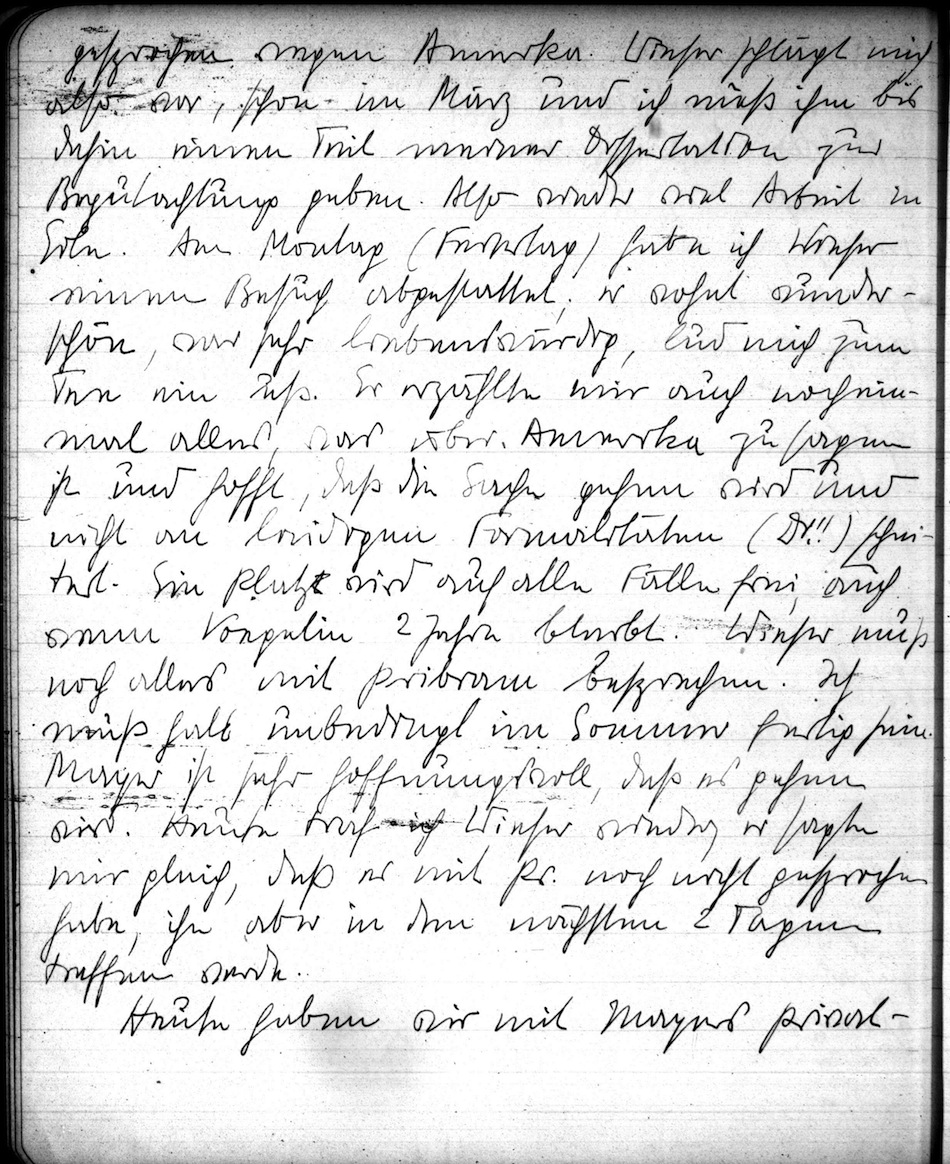 gesprochen wegen Amerika. Winter schlägt mich
also vor, schon im März und ich muß ihm bis
dahin einen Teil meiner Dissertation zur
Begutachtung geben. Also wieder viel Arbeit in
Am Montag (Feiertag) habe ich Winter
einen Besuch abgestattet, er wohnt wunder-
schön, war sehr liebenswürdig, lud mich zum
Tee ein usf. Er erzählte mir auch nochein-
mal alles, was über Amerika zu sagen
ist und hofft, daß die Sache gehen wird und
nicht an leidigen Formalitäten (Dr.!!) schei-
tert. Ein Platz wird auf alle Fälle frei, auch
wenn Voegelin 2 Jahre bleibt. Winter muß
noch alles mit Pribram besprechen. Ich
muß halt unbedingt im Sommer fertig sein.
Mayer ist sehr hoffnungsvoll, daß es gehen
wird. Heute traf ich Winter wieder, er sagte
mir gleich, daß er mit Pr. noch nicht gesprochen
habe, ihn aber in den nächsten 2 Tagen
treffen werde.
Heute haben wir mit Mayers Privat-